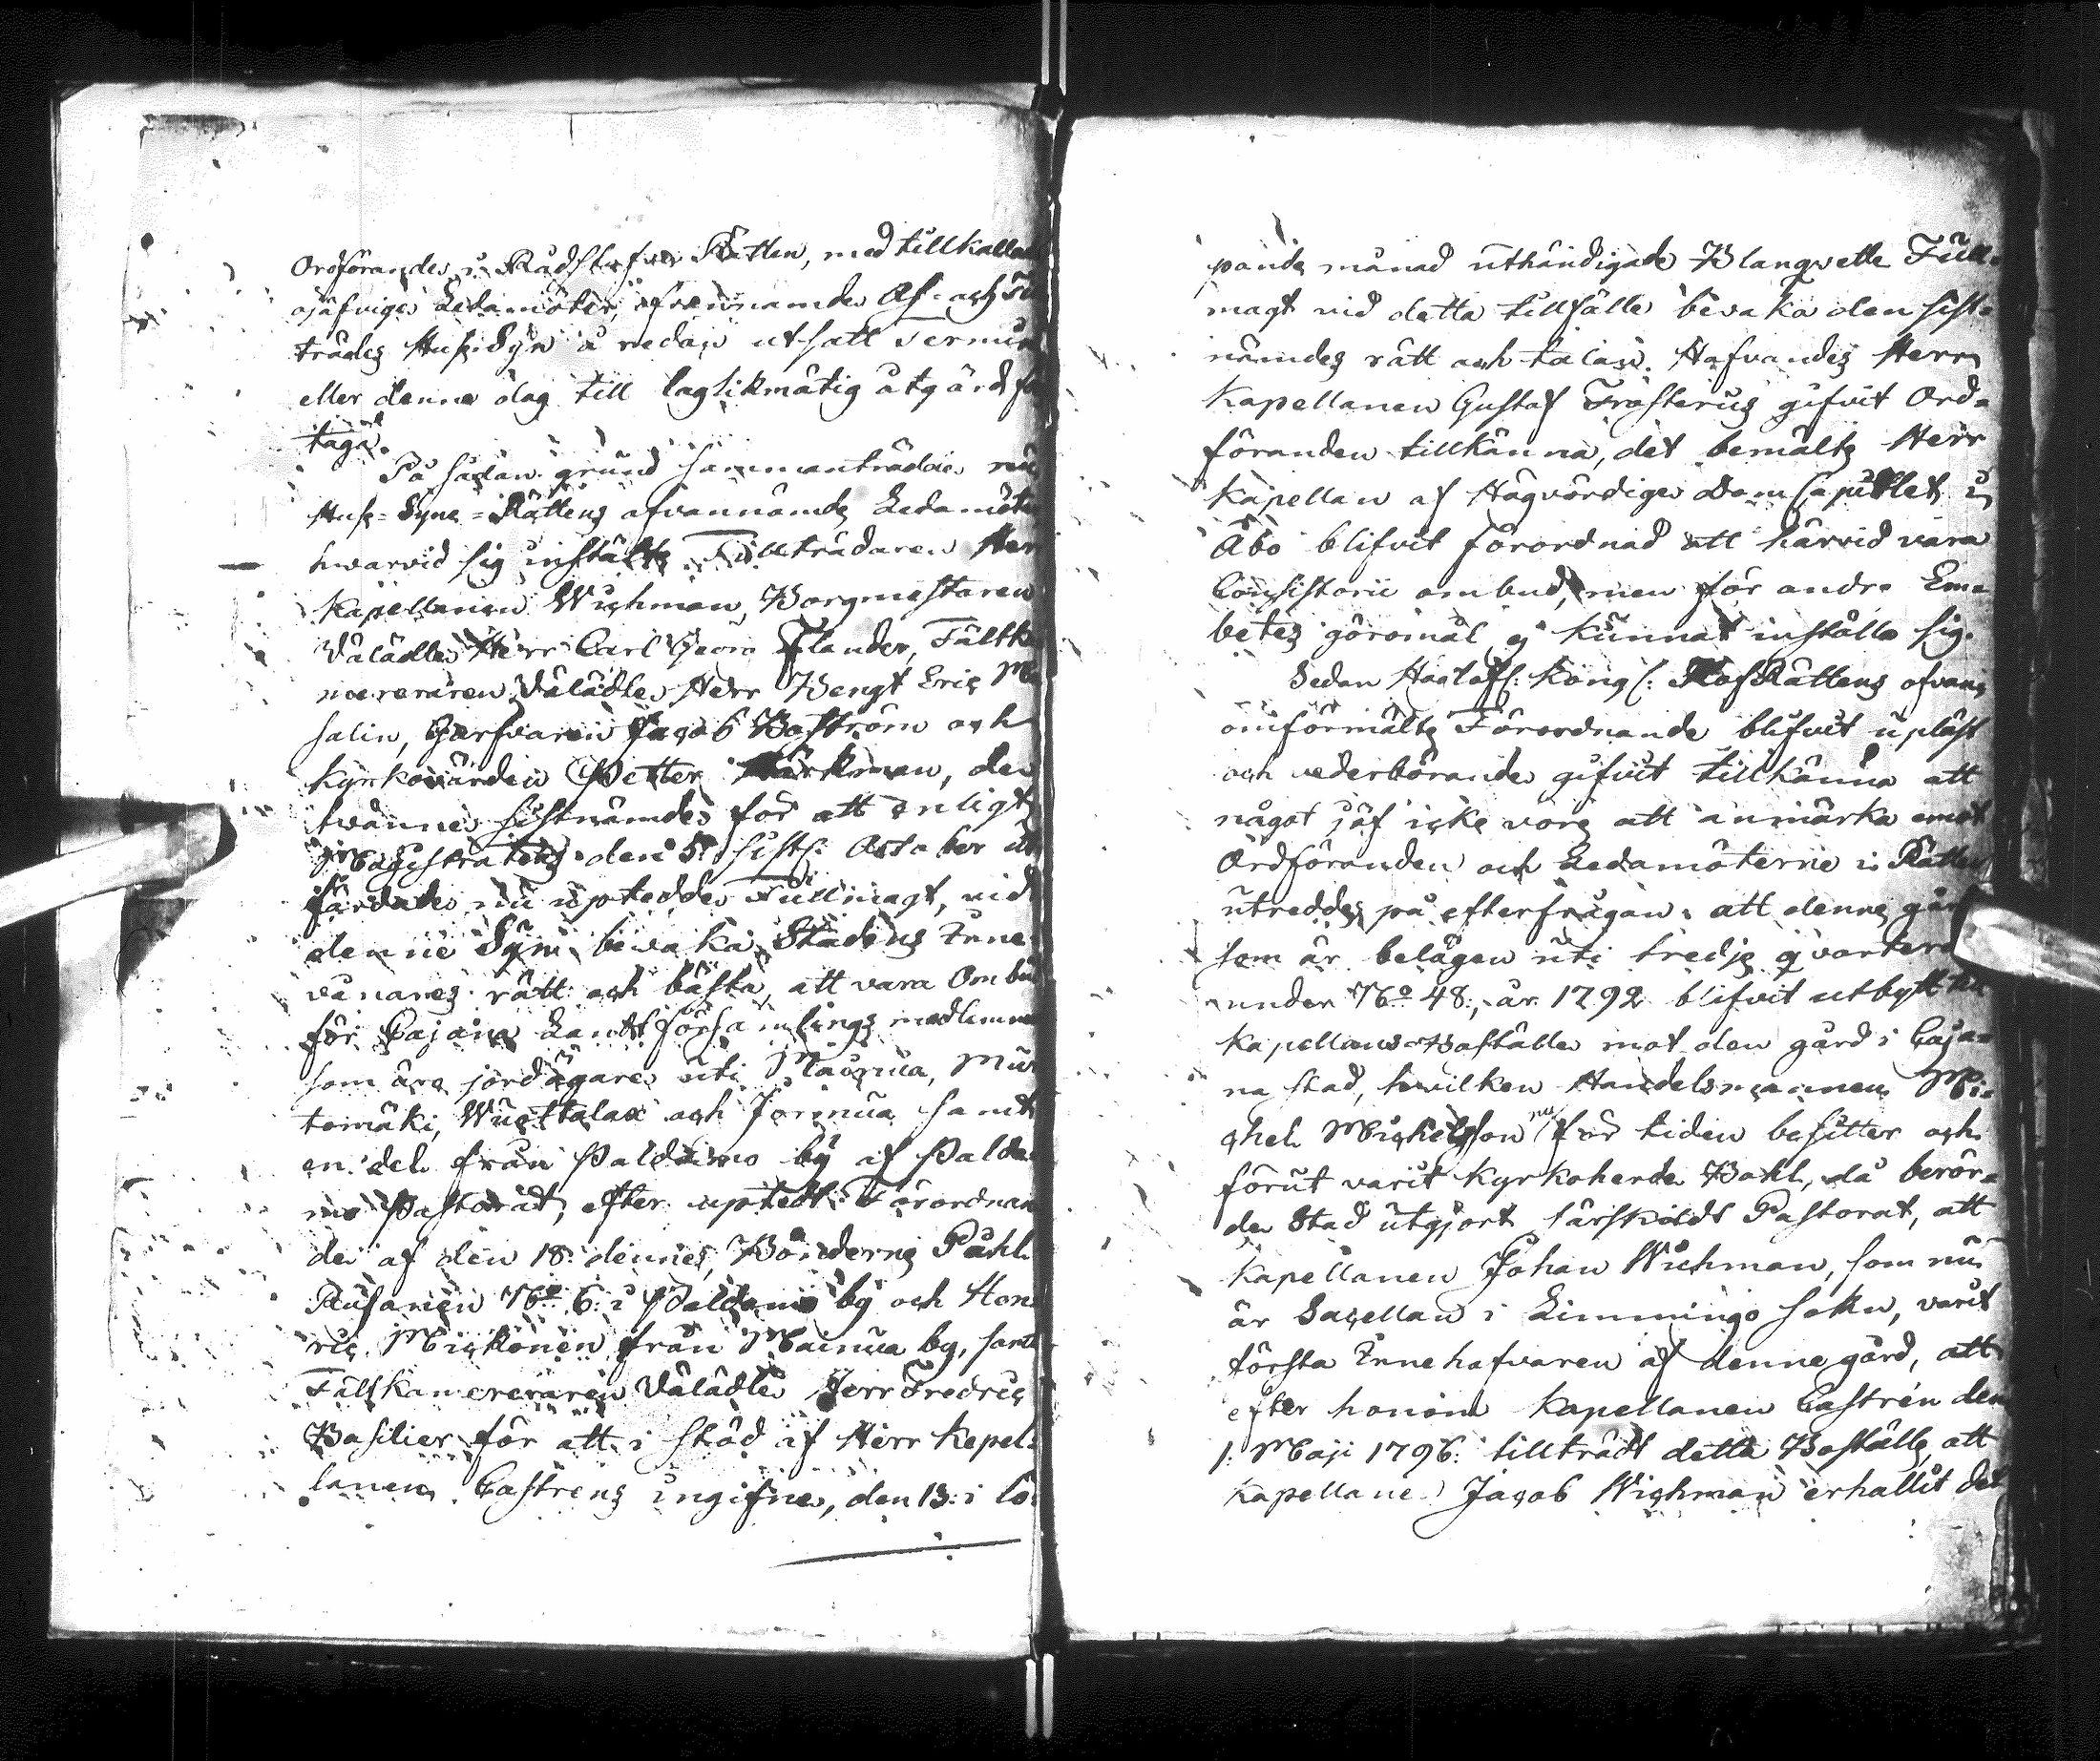 Ordförandes i Rådstufvu Rätten, med tillkallade
ojäfviga Ledamöter, ofvannämnde Af- och Til
trädes Huse-Syn å redan utsatt Termin
eller denne dag till laglikmätig åtgärd få
taga.
På sådan grund sammanträdde nu
Huse-Syne-Rättens ofvannämnde Ledamöter
hwarvid sig instälte Tillträdaren Herr
Kapellanen Wichman, Borgmestaren
Välädle Herr Carl Georg Elander, Fältka
mereraren Välädle Herr Bengt Eric Me
salin, Garfvaren Jacob Boström och
Kyrkovärden Petter Märkman, de
tvänne sistnämde för att enligt
Magistratens den 5 sistl. October ut
färdade nu uptedde Fullmagt, vid
denne Syn bevaka Stadens Inne
vånares rätt och bästa, att vara Ombud
för Cajana Landtförsamlings medlemmar
som äro jordägare uti Mainua, Mur
tomäki, Wuottolax och Jormua samt
en del från Paldamo by af Palda
mo Pastorat, efter uptedt Förordnan
de af den 18 dennes, Bönderne Påhl
Rusanen No 6 i Paldamo by och Hen
ric Mickonen från Mainua by, samt
Fältkamereraren Välädle Herr Fredric
Basilier för att i stöd af Herr Kapel
lanen Castrens ingifne, den 13 i lö
pande månad uthändigade Blanqvette Full
magt vid detta tillfälle bevaka den sist
nämdes rätt och talan. Hafvandes Herr
Kapellanen Gustaf Frosterus gifvit Ord
föranden tillkänna, det bemälte Herr
Kapellan af Högvördige DomCapitlet i
Åbo blifvit förordnad att härvid vara
Consistorii ombud, men för andra Em
betes göromål ej kunnat inställa sig.
Sedan Höglofl: Kongl: HofRättens ofvan
omförmälte Förordnande blifvit upläst
och vederbörande gifvit tillkänna att
något jäf icke vore att anmärka emot
Ordföranden och Ledamöterne i Rätten
utreddes på efterfrågan, att denne gård
som är belägen uti tredje qvarteret
under No 48, år 1792 blifvit utbytt till
Kapellans-Boställe mot den gård i Caja
na stad, hvilken Handelsmannen Mi
chel Michelsson nu för tiden besitter och
förut varit Kyrkoherde Bohl, då berör
de Stad utgjort särskildt Pastorat, att
Kapellanen Johan Wichman, som nu
är Sacellan i Limmingo sokn, varit
första Innehafvaren af denne gård, att
efter honom Kapellanen Castrén den
1 Maji 1796 tillträdt detta Boställe, att
Kapellanen Jacob Wichman erhållit det